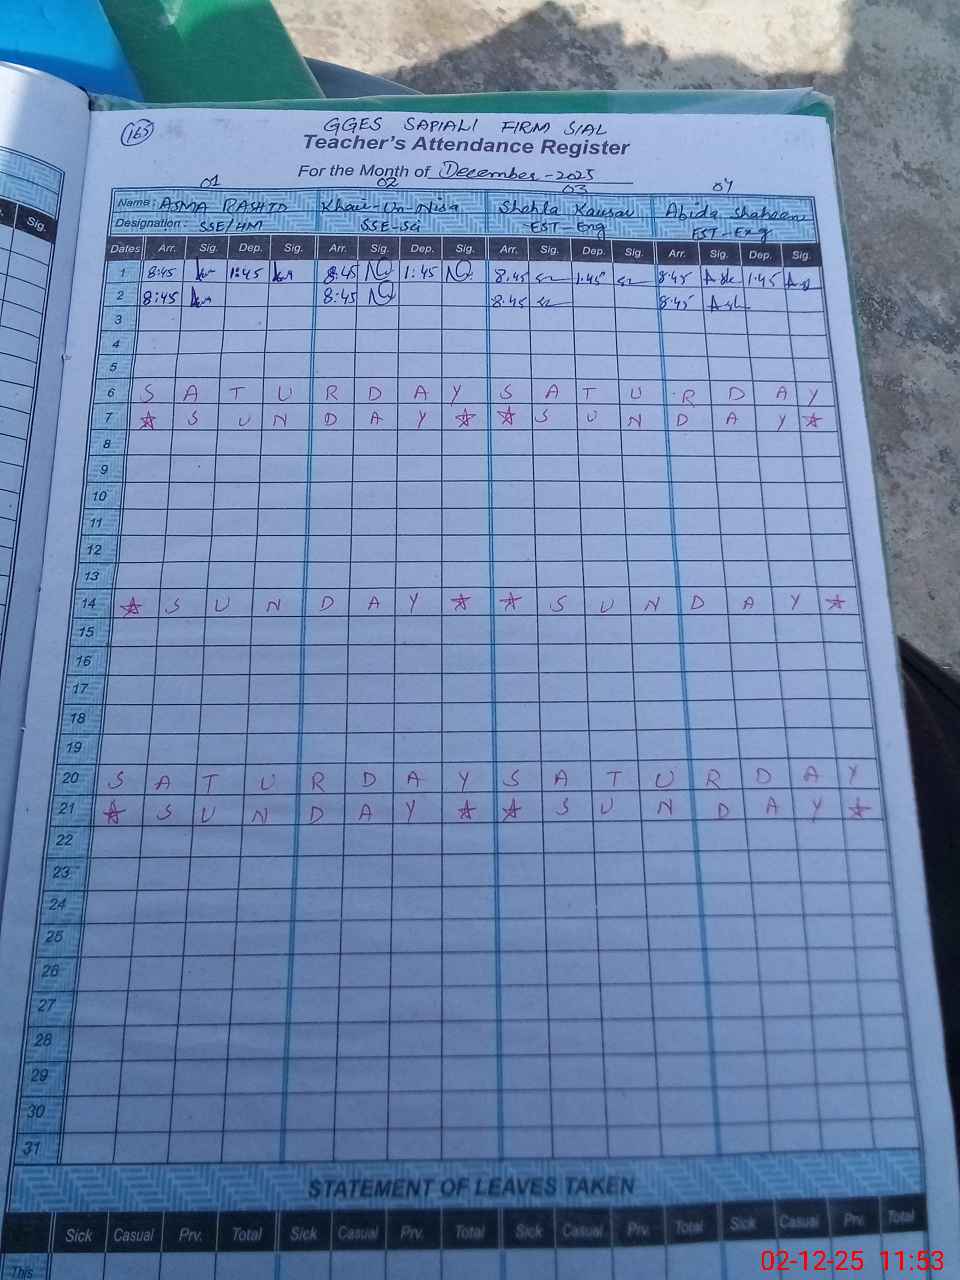 165
GGES SAPIALI FIRM SIAL
Teacher's Attendance Register
For the Month of December-2025
01 02 03 04
Name: ASMA RASHID Khair-Un-Nisa Shehla Kausar Abida Shaheen
Designation: SSE/HM SSE-Sci EST-Eng EST-Eng
Sig.
Dates Arr. Sig. Dep. Sig. Arr. Sig. Dep. Sig. Arr. Sig. Dep. Sig. Arr. Sig. Dep. Sig.
1 8:45 1:45 8:45 1:45 8:45 1:45 8:45 1:45
2 8:45 8:45 8:45 8:45
3
4
5
6 S A T U R D A Y S A T U R D A Y
7 ☆ S U N D A Y ☆ ☆ S U N D A Y ☆
8
9
10
11
12
13
14 ☆ S U N D A Y ☆ ☆ S U N D A Y ☆
15
16
17
18
19
20 S A T U R D A Y S A T U R D A Y
21 ☆ S U N D A Y ☆ ☆ S U N D A Y ☆
22
23
24
25
26
27
28
29
30
31
STATEMENT OF LEAVES TAKEN
Sick Casual Prv. Total Sick Casual Prv. Total Sick Casual Prv. Total Sick Casual Prv. Total
This
02-12-25 11:53